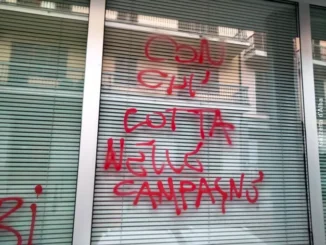 CON
CHI
LOTTA
NELLE
CAMPAGNE
Bi
d'Alba